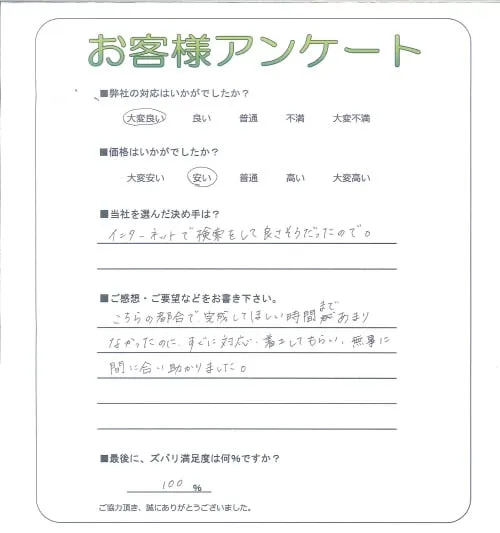 お客様アンケート
■弊社の対応はいかがでしたか？
大変良い 良い 普通 不満 大変不満
■価格はいかがでしたか？
大変安い 安い 普通 高い 大変高い
■当社を選んだ決め手は？
インターネットで検索をして良さそうだったので。
■ご感想・ご要望などをお書き下さい。
こちらの都合で完成してほしい時間まであまり
なかったのに、すぐに対応、着工してもらい、無事に
間に合い助かりました。
■最後に、ズバリ満足度は何%ですか？
100 %
ご協力頂き、誠にありがとうございました。